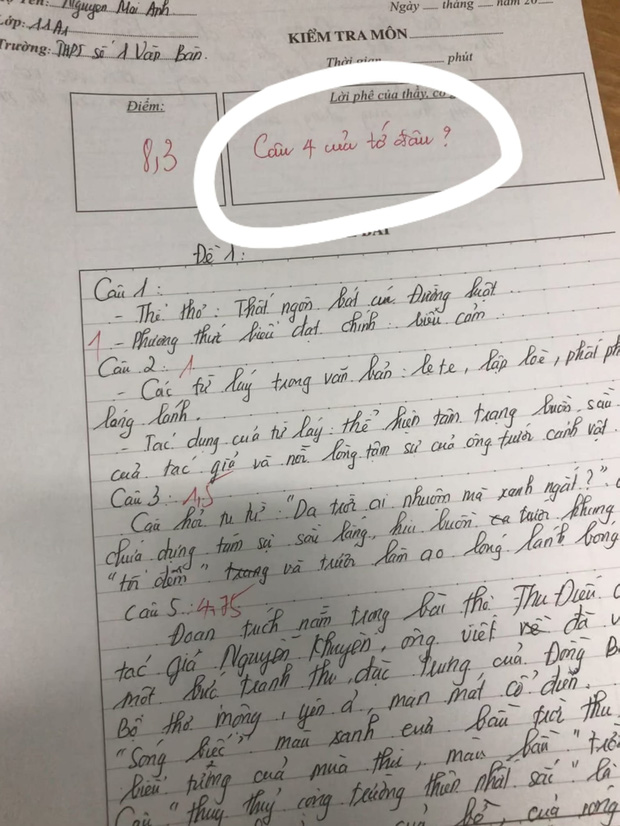 Nguyen Mai Anh
Lớp: 11A1
Trường: THPT số 1 Văn Bàn.
Ngày __ tháng __ năm 20
KIỂM TRA MÔN
Thời gian phút
Điểm:
Lời phê của thầy, cô
8,3
Câu 4 của tớ đâu?
BÀI
Đề 1:
Câu 1:
- Thể thơ: Thất ngôn bát cú Đường luật
1 - Phương thức biểu đạt chính: biểu cảm
Câu 2: 1
- Các từ láy trong văn bản: le te, lập loè, phất ph
lóng lánh.
- Tác dụng của từ láy: thể hiện tâm trạng buồn, sầu
của tác giả và nỗi lòng tâm sự của ông trước cảnh vật.
Câu 3: 1,5
Câu hỏi tu từ "Da trời ai nhuộm mà xanh ngắt?"
chứa đựng tâm sự sâu lắng, hiu buồn trước khung
"tối đêm" và trước làn ao lóng lánh bóng
Câu 5: 4,75
Đoạn trích nằm trong bài thơ Thu Điếu
tác giả Nguyễn Khuyến, ông viết về đã v
một bức tranh thu đặc trưng của Đồng B
Bộ thơ mộng, yên ả, man mát cổ điển.
"Sóng biếc" màu xanh của bầu trời thu
biểu tượng của mùa thu, màu
Câu "thuỷ thuỷ cộng trường thiên nhất sắc" là